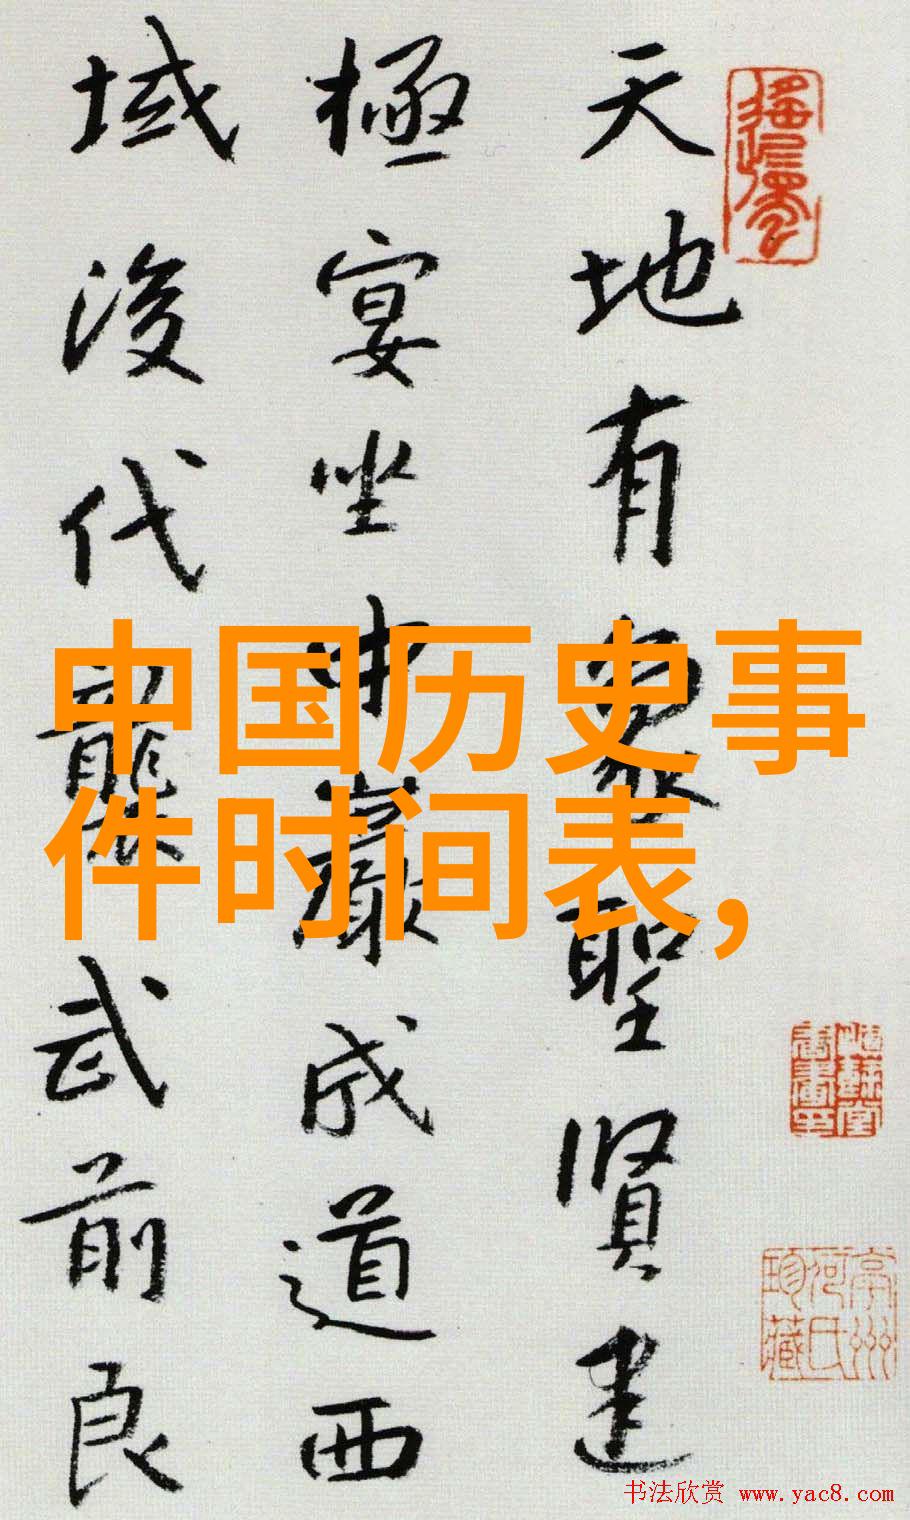 天地有象聖賢建
極宴坐中巖成道西
域後代襲武前良
中国历史事
件时间表,
亭州
河氏
珍藏
书法欣赏 www.yac8.com